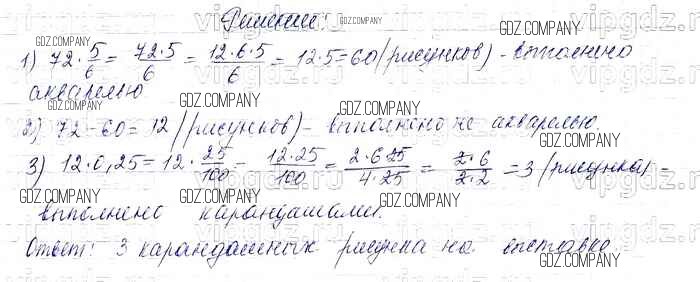 Решение:
1) 72 · 5/6 = 72·5/6 = 12·6·5/6 = 12·5 = 60 (рисунков) - выполнено
акварелью
2) 72 - 60 = 12 (рисунков) - выполнено не акварелью.
3) 12·0,25 = 12 · 25/100 = 12·25/100 = 2·6·25/4·25 = 2·6/2·2 = 3 (рисунка) -
выполнено карандашами.
Ответ: 3 карандашных рисунка на выставке.
GDZ.COMPANY
vipgdz.ru